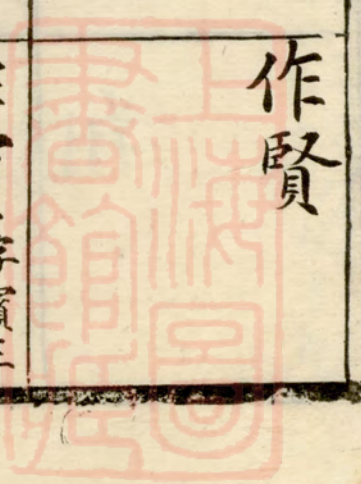 作賢
上海圖
書館藏